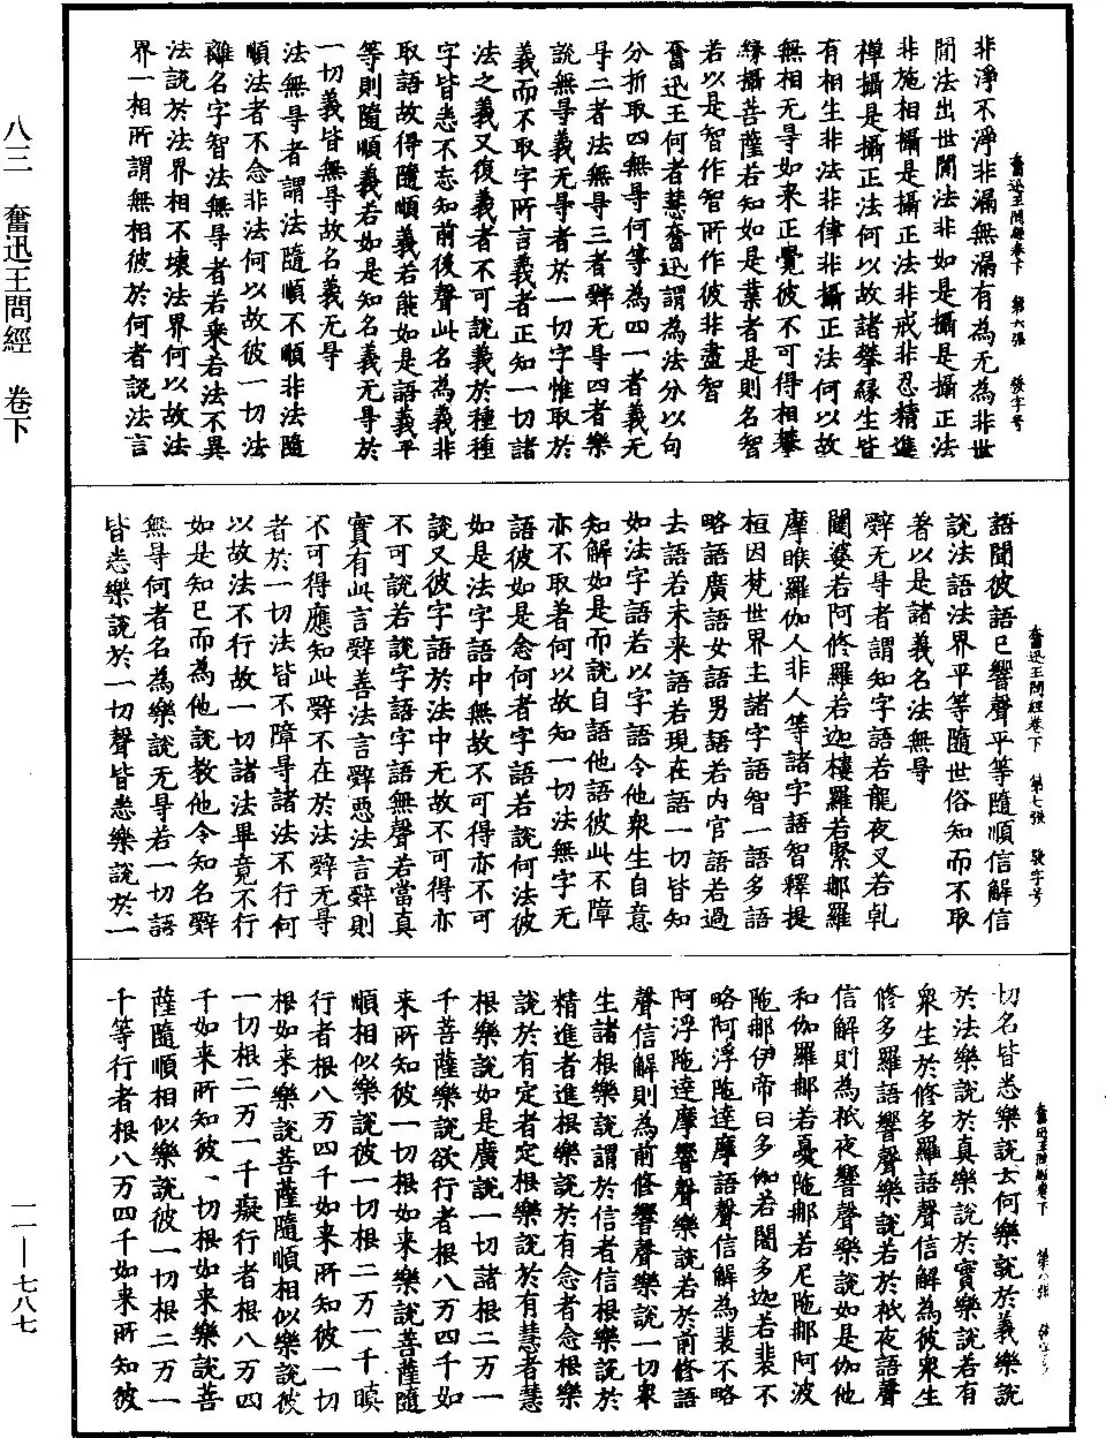 八三　奮迅王問經　卷下
一一—七八七
奮迅王問經卷下　第六張　發字号
非淨不淨非漏無漏有為无為非世
間法出世間法非如是攝是攝正法
非施相攝是攝正法非戒非忍精進
禪攝是攝正法何以故諸攀縁生皆
有相生非法非律非攝正法何以故
無相无导如来正覺彼不可得相攀
縁攝菩薩若知如是葉者是則名智
若以是智作智所作彼非盡智
奮迅王何者慧奮迅謂為法分以句
分折取四無导何等為四一者義无
导二者法無导三者辤无导四者樂
說無导義无导者於一切字惟取於
義而不取字所言義者正知一切諸
法之義又復義者不可說義於種種
字皆悉不忘知前後聲此名為義非
取語故得隨順義若能如是語義平
等則隨順義若如是知名義无导於
一切義皆無导故名義无导
法無导者謂法隨順不順非法隨
順法者不念非法何以故彼一切法
離名字智法無导者若乘若法不異
法說於法界相不壊法界何以故法
界一相所謂無相彼於何者說法言
奮迅王問經卷下　第七張　發字号
語聞彼語已響聲平等隨順信解信
說法語法界平等隨世俗知而不取
著以是諸義名法無导
辤无导者謂知字語若龍夜叉若乹
闥婆若阿修羅若迦樓羅若緊那羅
摩睺羅伽人非人等諸字語智釋提
桓因梵世界主諸字語智一語多語
略語廣語女語男語若内官語若過
去語若未来語若現在語一切皆知
如法字語若以字語令他衆生自意
知解如是而說自語他語彼此不障
亦不取著何以故知一切法無字无
語彼如是念何者字語若說何法彼
如是法字語中無故不可得亦不可
說又彼字語於法中无故不可得亦
不可說若說字語字語無聲若當真
實有此言辤善法言辤惡法言辤則
不可得應知此辤不在於法辤无导
者於一切法皆不障导諸法不行何
以故法不行故一切諸法畢竟不行
如是知已而為他說教他令知名辤
無导何者名為樂說无导若一切語
皆悉樂說於一切聲皆悉樂說於一
奮迅王問經卷下　第八張
切名皆悉樂說云何樂說於義樂說
於法樂說於真樂說於實樂說若有
衆生於修多羅語聲信解為彼衆生
修多羅語響聲樂說若於祇夜語聲
信解則為祇夜響聲樂說如是伽他
和伽羅那若憂陁那若尼陁那阿波
陁那伊帝曰多伽若闍多迦若裴不
略阿浮陁達摩語聲信解為裴不略
阿浮陁達摩響聲樂說若於前修語
聲信解則為前修響聲樂說一切衆
生諸根樂說謂於信者信根樂說於
精進者進根樂說於有念者念根樂
說於有定者定根樂說於有慧者慧
根樂說如是廣說一切諸根二万一
千菩薩樂說欲行者根八万四千如
来所知彼一切根如来樂說菩薩隨
順相似樂說彼一切根二万一千瞋
行者根八万四千如来所知彼一切
根如来樂說菩薩隨順相似樂說彼
一切根二万一千癡行者根八万四
千如来所知彼一切根如来樂說菩
薩隨順相似樂說彼一切根二万一
千等行者根八万四千如来所知彼